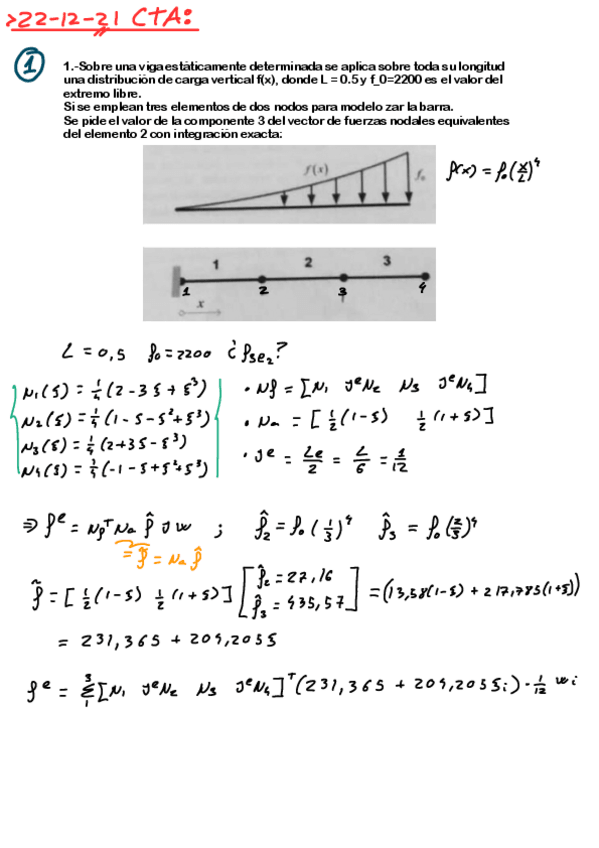 >22-12-21 CTA:
① 1.-Sobre una viga estáticamente determinada se aplica sobre toda su longitud
una distribución de carga vertical f(x), donde L = 0.5 y f_0=2200 es el valor del
extremo libre.
Si se emplean tres elementos de dos nodos para modelo zar la barra.
Se pide el valor de la componente 3 del vector de fuerzas nodales equivalentes
del elemento 2 con integración exacta:
f(x) f₀ f(x) = f₀(x/L)⁴
1 2 3
1 2 3 4
x
L = 0,5 f₀ = 2200 ¿f3e₂?
N₁(ξ) = 1/4 (2-3ξ+ξ³) · Nf = [N₁ JᵉN₂ N₃ JᵉN₄]
N₂(ξ) = 1/4 (1-ξ-ξ²+ξ³) · Na = [1/2(1-ξ) 1/2(1+ξ)]
N₃(ξ) = 1/4 (2+3ξ-ξ³)
N₄(ξ) = 1/4 (-1-ξ+ξ²+ξ³) · Jᵉ = Le/2 = L/6 = 1/12
⇒ fᵉ = Nfᵀ Na f̂ J w ; f̂₂ = f₀(1/3)⁴ f̂₃ = f₀(2/3)⁴
= f̃ = Na f̂
f̃ = [1/2(1-ξ) 1/2(1+ξ)] [f̂₂ = 27,16 f̂₃ = 435,57] = (13,58(1-ξ) + 217,785(1+ξ))
= 231,365 + 204,205ξ
fᵉ = Σ₁³ [N₁ JᵉN₂ N₃ JᵉN₄]ᵀ (231,365 + 204,205ξi) · 1/12 wi